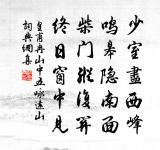 少室盡西峰
鳴皋隱南面
柴門縱復關
終日窗中見
皇甫冉山中五詠遠山
詞典網集